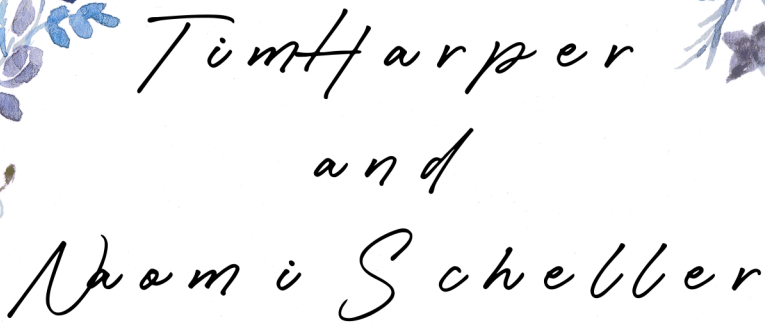 Tim Harper
and
Naomi Scheller